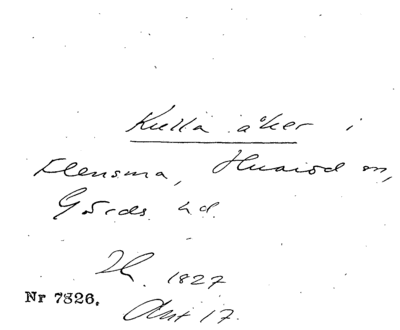 Kulla åker i
Elensma, Huaröd sn,
Gärds hd.
Lh. 1827
Nr 7826.
Akt 17.